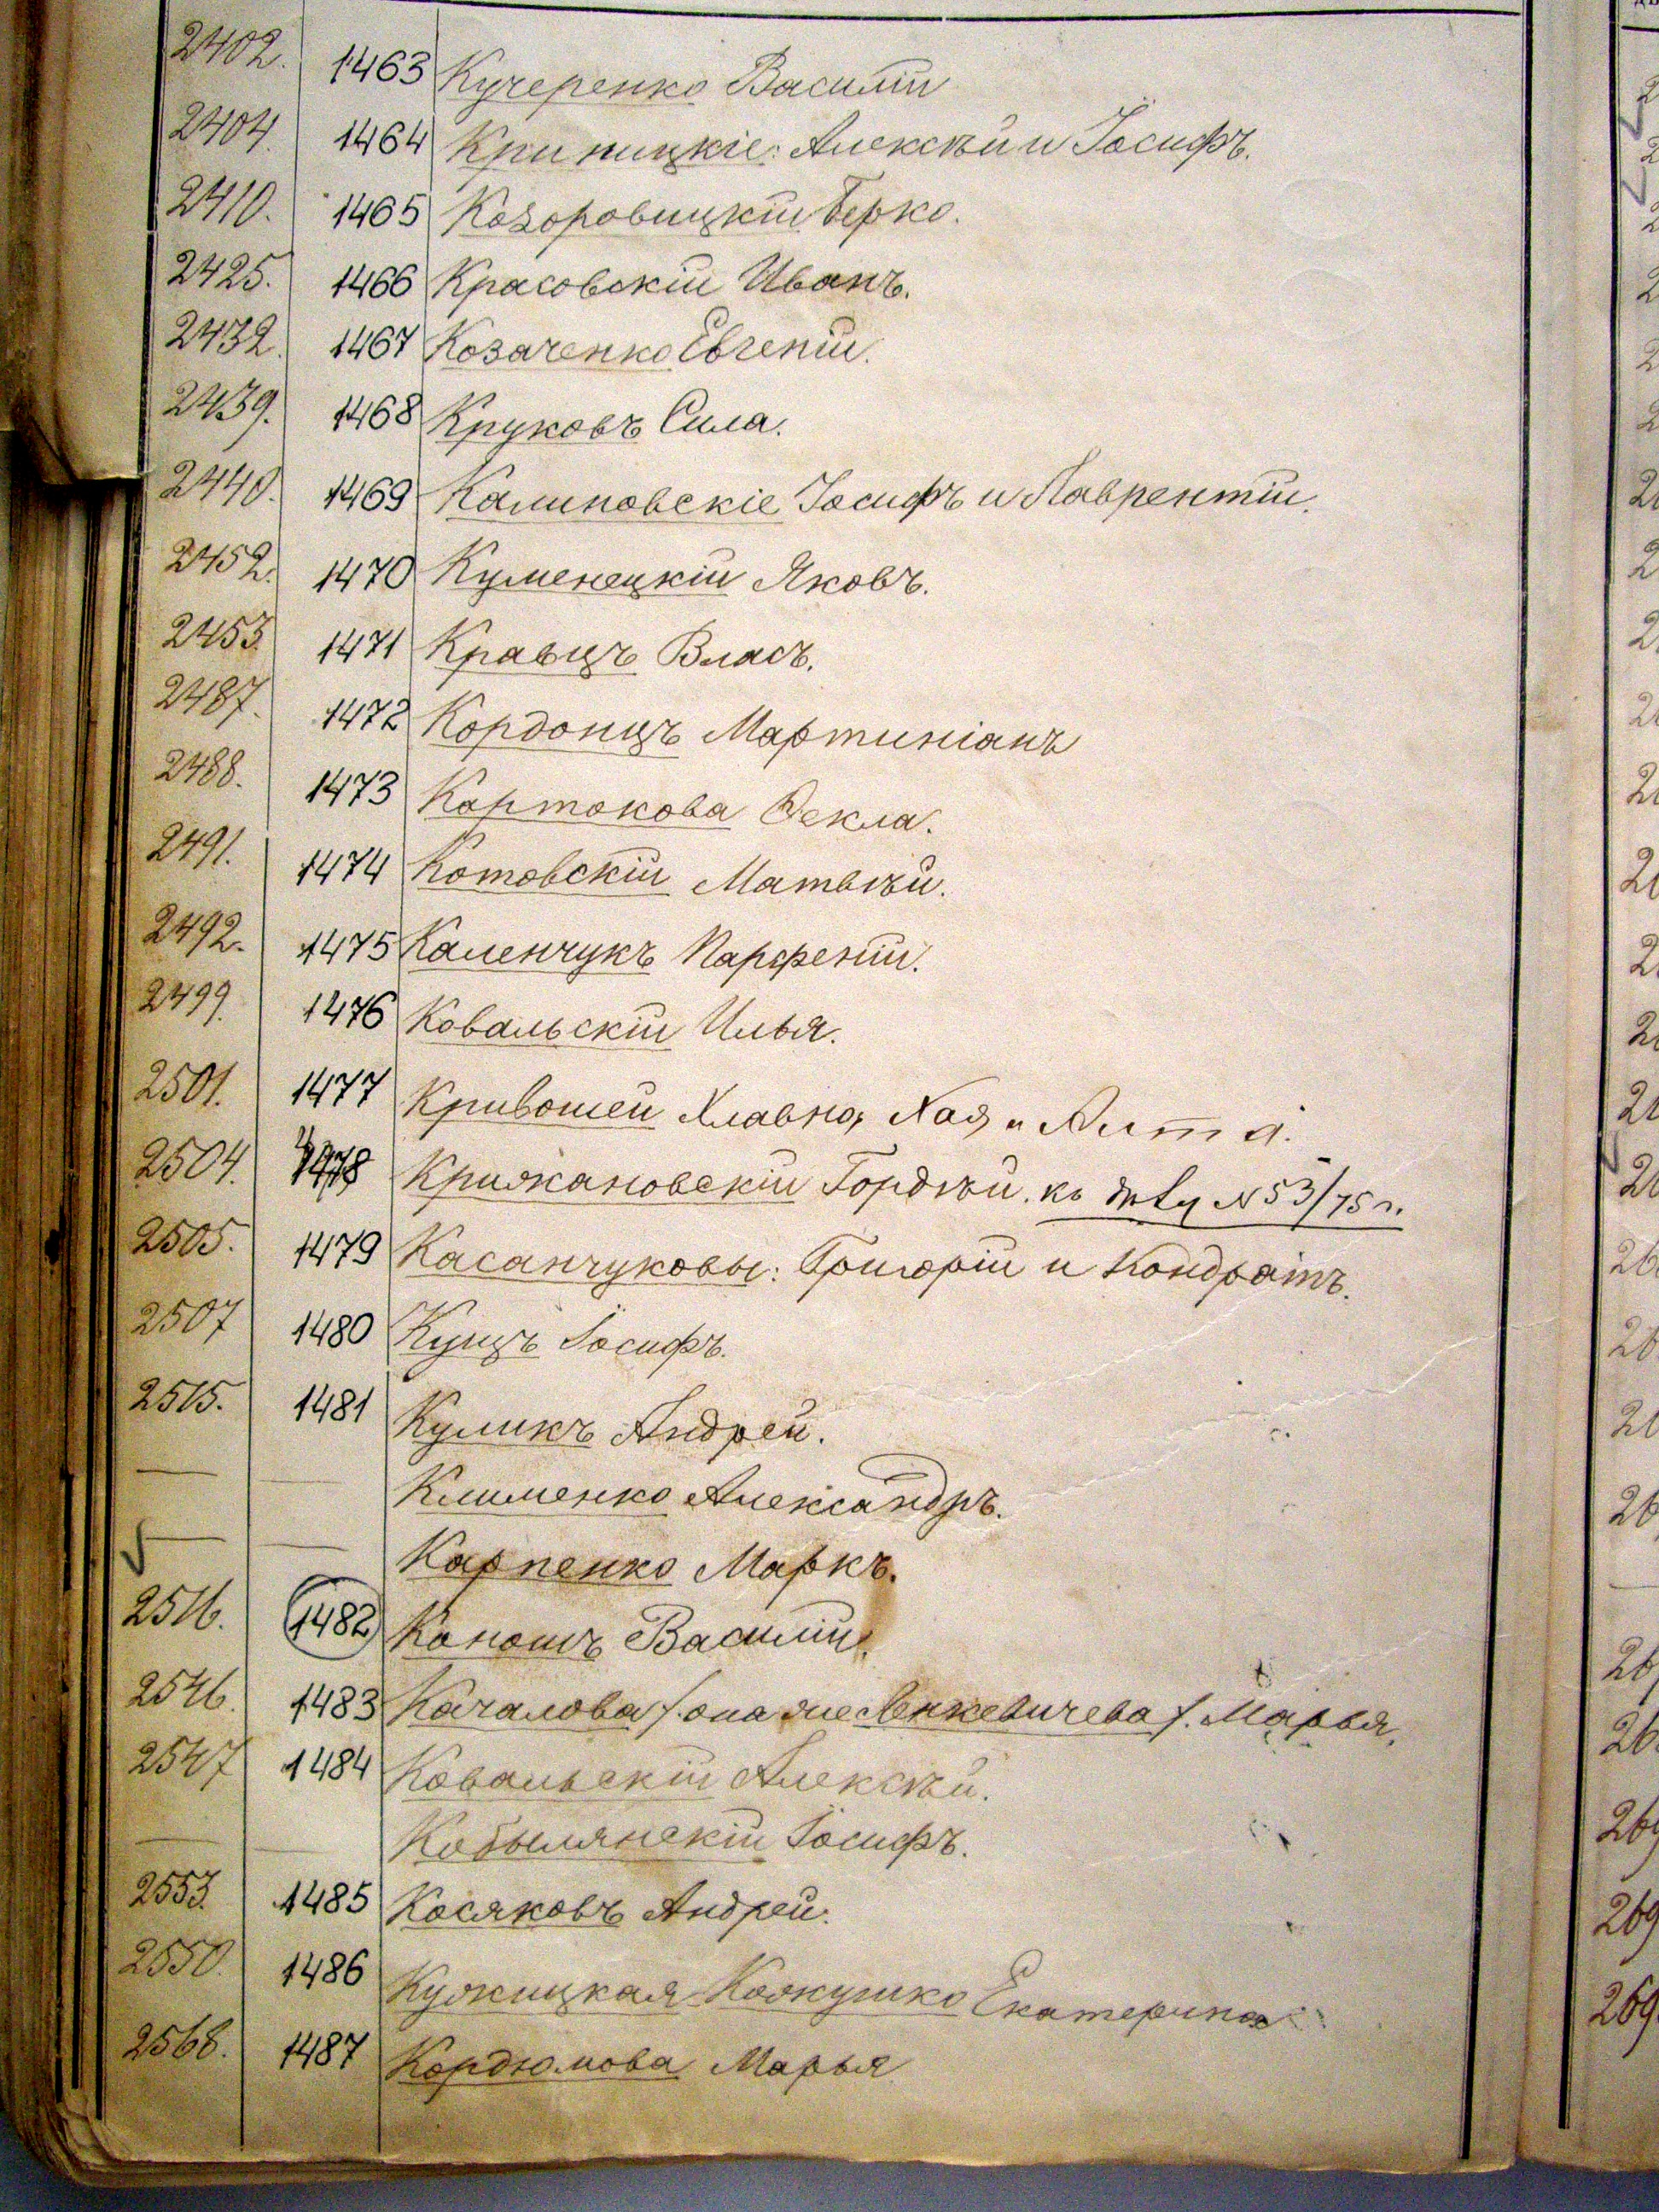 2402. 1463 Кучеренко Василій
2404. 1464 Криницкіе: Алексѣй и Іосифъ.
2410. 1465 Козоровицкій Берко.
2425. 1466 Красовскій Иванъ.
2432. 1467 Козаченко Евгеній.
2439. 1468 Круковъ Сила.
2440. 1469 Калиновскіе Іосифъ и Лаврентій.
2452. 1470 Куменецкій Яковъ.
2453. 1471 Кравцъ Власъ.
2487. 1472 Кордонцъ Мартиніанъ
2488. 1473 Картокова Ѳекла.
2491. 1474 Котовскій Матвѣй.
2492. 1475 Каленчукъ Парфеній.
2499. 1476 Ковальскій Илья.
2501. 1477 Кривошеи Хлавна, Хая и
2504. 1478 Крижановскій Гордѣй. къ дѣлу N 53/75 г.
2505. 1479 Касанчуковы: Григорій и Кондратъ.
2507 1480 Куцъ Іосифъ.
2515. 1481 Куликъ Андрей.
— — Клименко Александръ.
— — Карпенко Маркъ.
2516. 1482 Кононъ Василій.
2546. 1483 Качалова /. она же Венкевичева /. Марья.
2547 1484 Ковальскій Алексѣй.
— — Кобылянскій Іосифъ.
2553. 1485 Косяковъ Андрей.
2550. 1486 Кужицкая-Кожушко Екатерина
2568. 1487 Кордюмова Марья